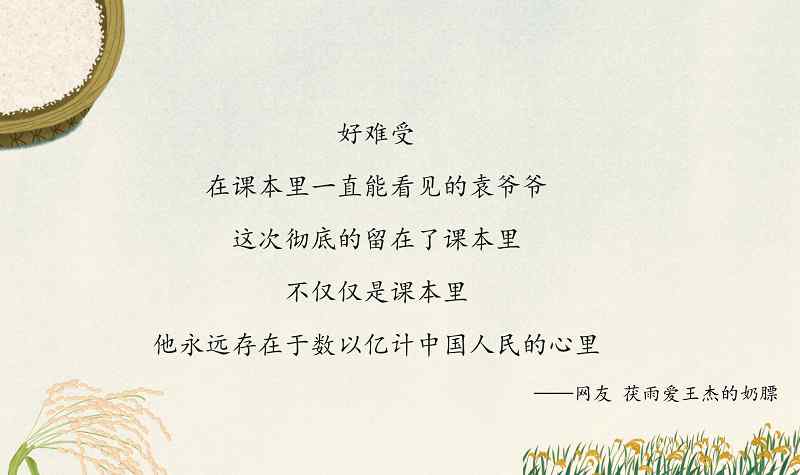 好难受
在课本里一直能看见的袁爷爷
这次彻底的留在了课本里
不仅仅是课本里
他永远存在于数以亿计中国人民的心里
——网友 茯雨爱王杰的奶膘